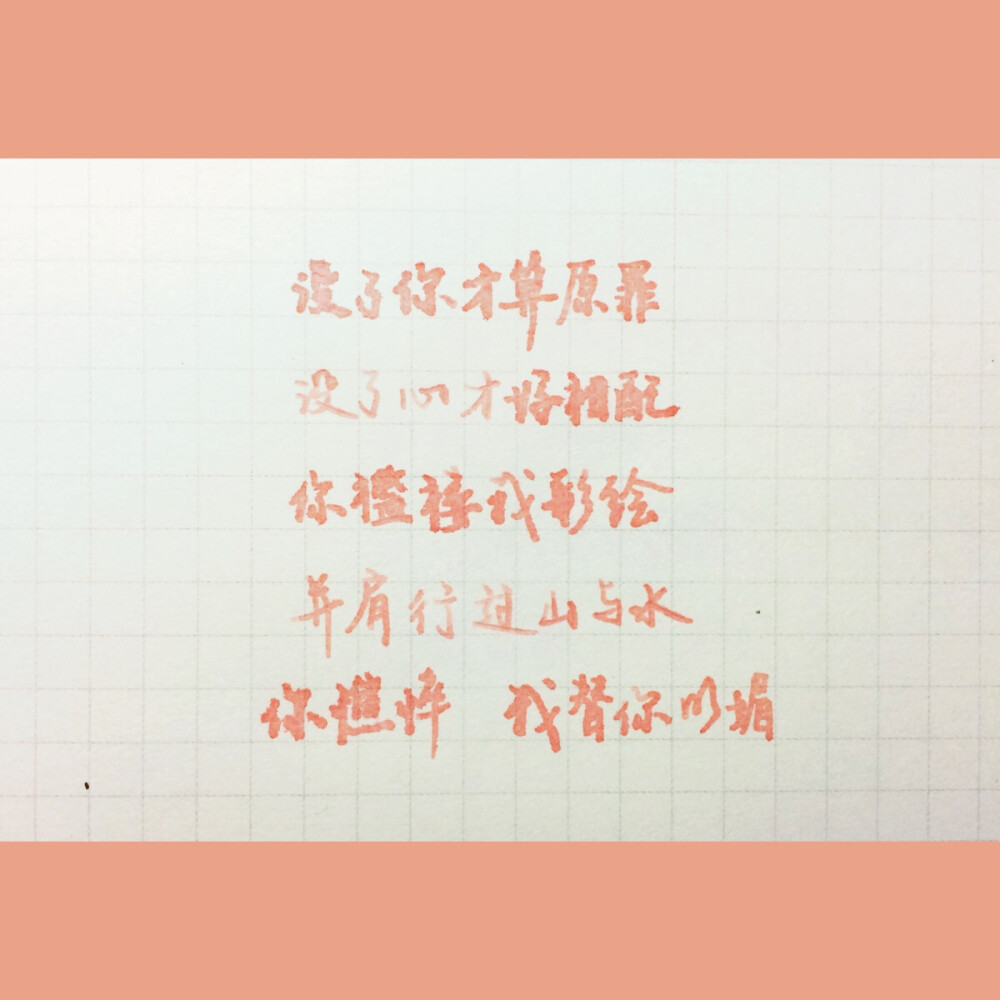 没了你才算原罪
没了心才好相配
你褴褛我彩绘
并肩行过山与水
你憔悴 我替你明媚